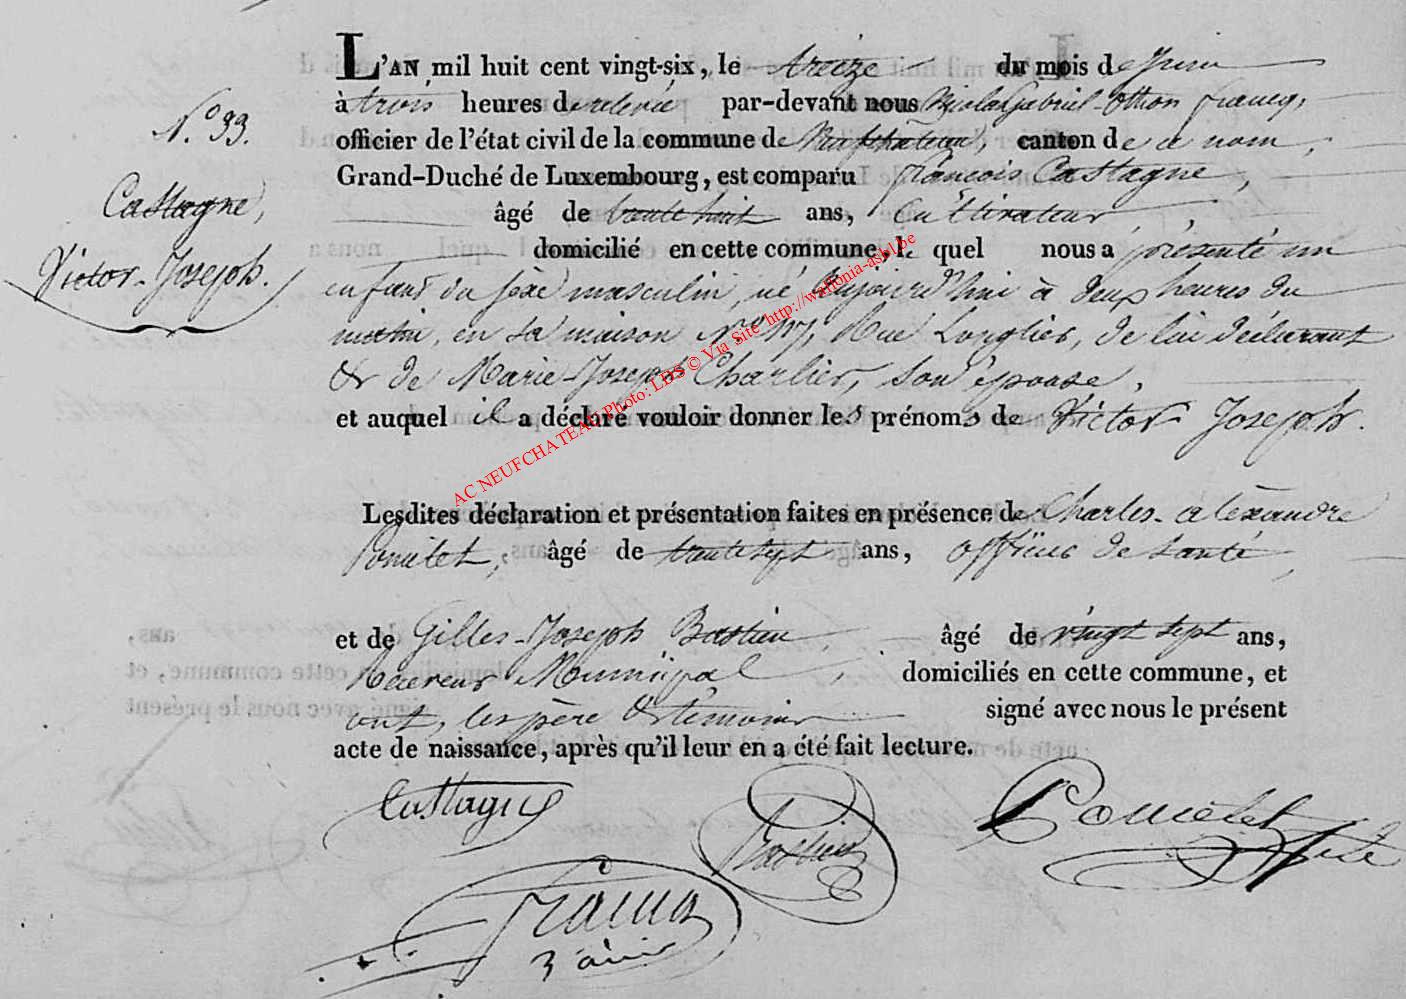 L'AN mil huit cent vingt-six, le treize du mois de Juin
à trois heures de relevée par-devant nous Nicolas Gabriel-Othon francq,
N.o 33.
officier de l'état civil de la commune de Neufchateau, canton de ce nom,
Grand-Duché de Luxembourg, est comparu françois Castagne,
Castagne,
âgé de trente huit ans, Cultivateur
Victor-Joseph.
domicilié en cette commune, le quel nous a présenté un
enfant du sèxe masculin né aujourd'hui à deux heures du
matin, en sa maison N.o Rue Longlier, de lui déclarant
& de Marie-Joseph Charlier, son épouse,
et auquel il a déclaré vouloir donner les prénoms de Victor Joseph.
AC NEUFCHATEAU Photo: LDS © Via Site http://wallonia-asbl.be
Lesdites déclaration et présentation faites en présence de Charles-alèxandre
âgé de trente sept ans, officier de santé,
et de Gilles-Joseph Bastien, âgé de vingt sept ans,
Receveur Municipal, domiciliés en cette commune, et
ont, les père & témoins signé avec nous le présent
acte de naissance, après qu'il leur en a été fait lecture.
Castagne
Bastien